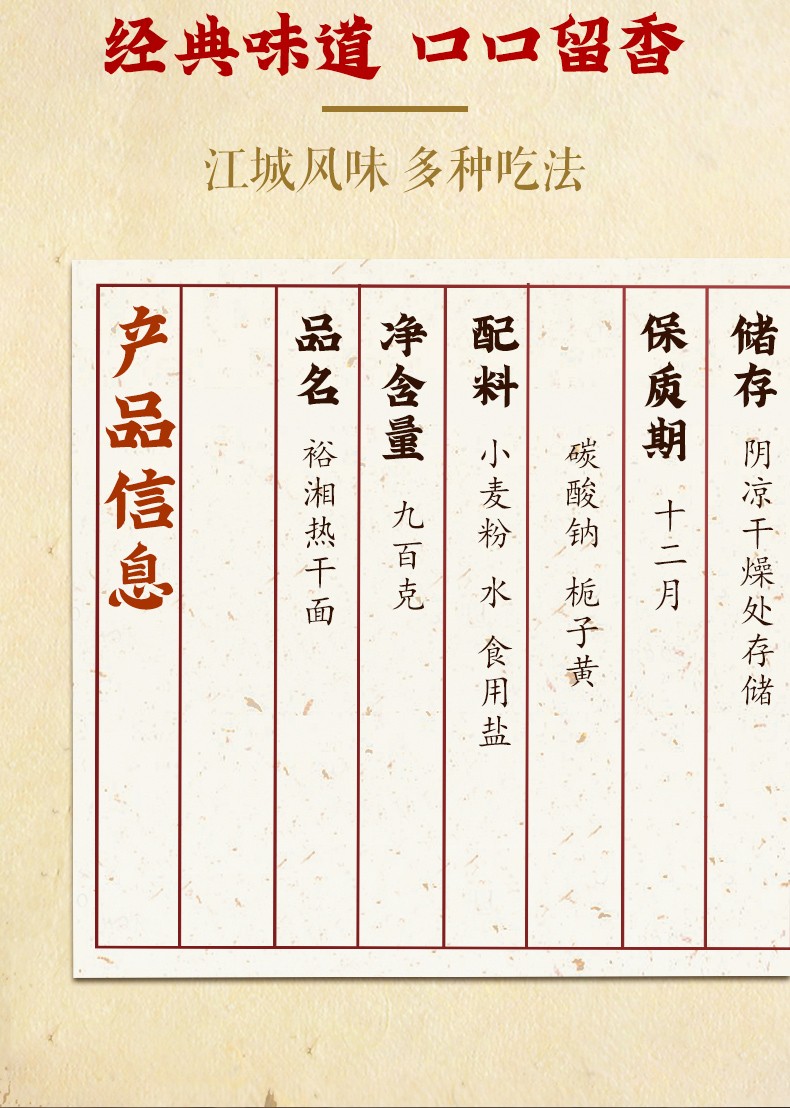 经典味道 口口留香
江城风味 多种吃法
产品信息
品名 裕湘热干面
净含量 九百克
配料 小麦粉 水 食用盐
碳酸钠 栀子黄
保质期 十二月
储存 阴凉干燥处存储